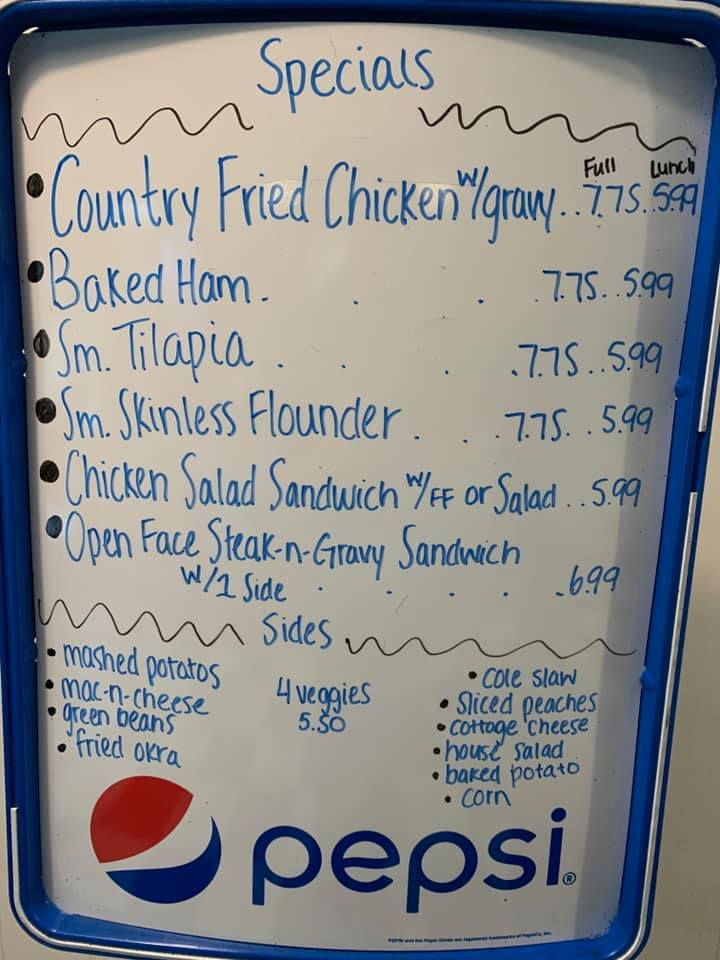 Specials
Full Lunch
Country Fried Chicken w/gravy..7.75..5.99
Baked Ham. . . .7.75..5.99
Sm. Tilapia . . . .7.75..5.99
Sm. Skinless Flounder . . .7.75. .5.99
Chicken Salad Sandwich w/FF or Salad ..5.99
Open Face Steak-n-Gravy Sandwich
w/1 Side . . . . .6.99
Sides
mashed potatos
mac-n-cheese
green beans
fried okra
4 veggies
5.50
cole slaw
Sliced peaches
cottage cheese
house salad
baked potato
corn
pepsi®
PEPSI and the Pepsi Globe are registered trademarks of PepsiCo, Inc.